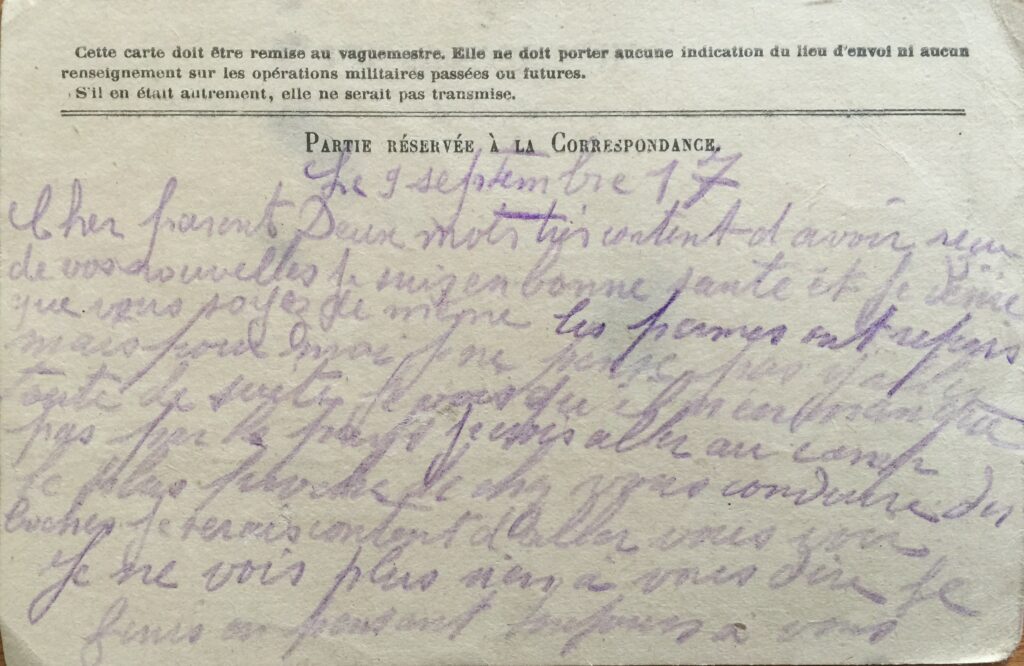 Cette carte doit être remise au vaguemestre. Elle ne doit porter aucune indication du lieu d'envoi ni aucun
renseignement sur les opérations militaires passées ou futures.
S'il en était autrement, elle ne serait pas transmise.
PARTIE RÉSERVÉE À LA CORRESPONDANCE.
Le 9 septembre 17
Cher parent Deux mots très content d avoir reçu
de vos nouvelles je suis en bonne sante et je désire
que vous soyez de même les permes ont repris
mais pour moi je ne pense pas y aller
toute de suite je vois qu il n en manque
pas par le pays je vais aller au camp
le plus proche de chez vous conduire des
boches je serais content d'aller vous voir
Je ne vois plus rien à vous dire je
finis en pensant toujours à vous